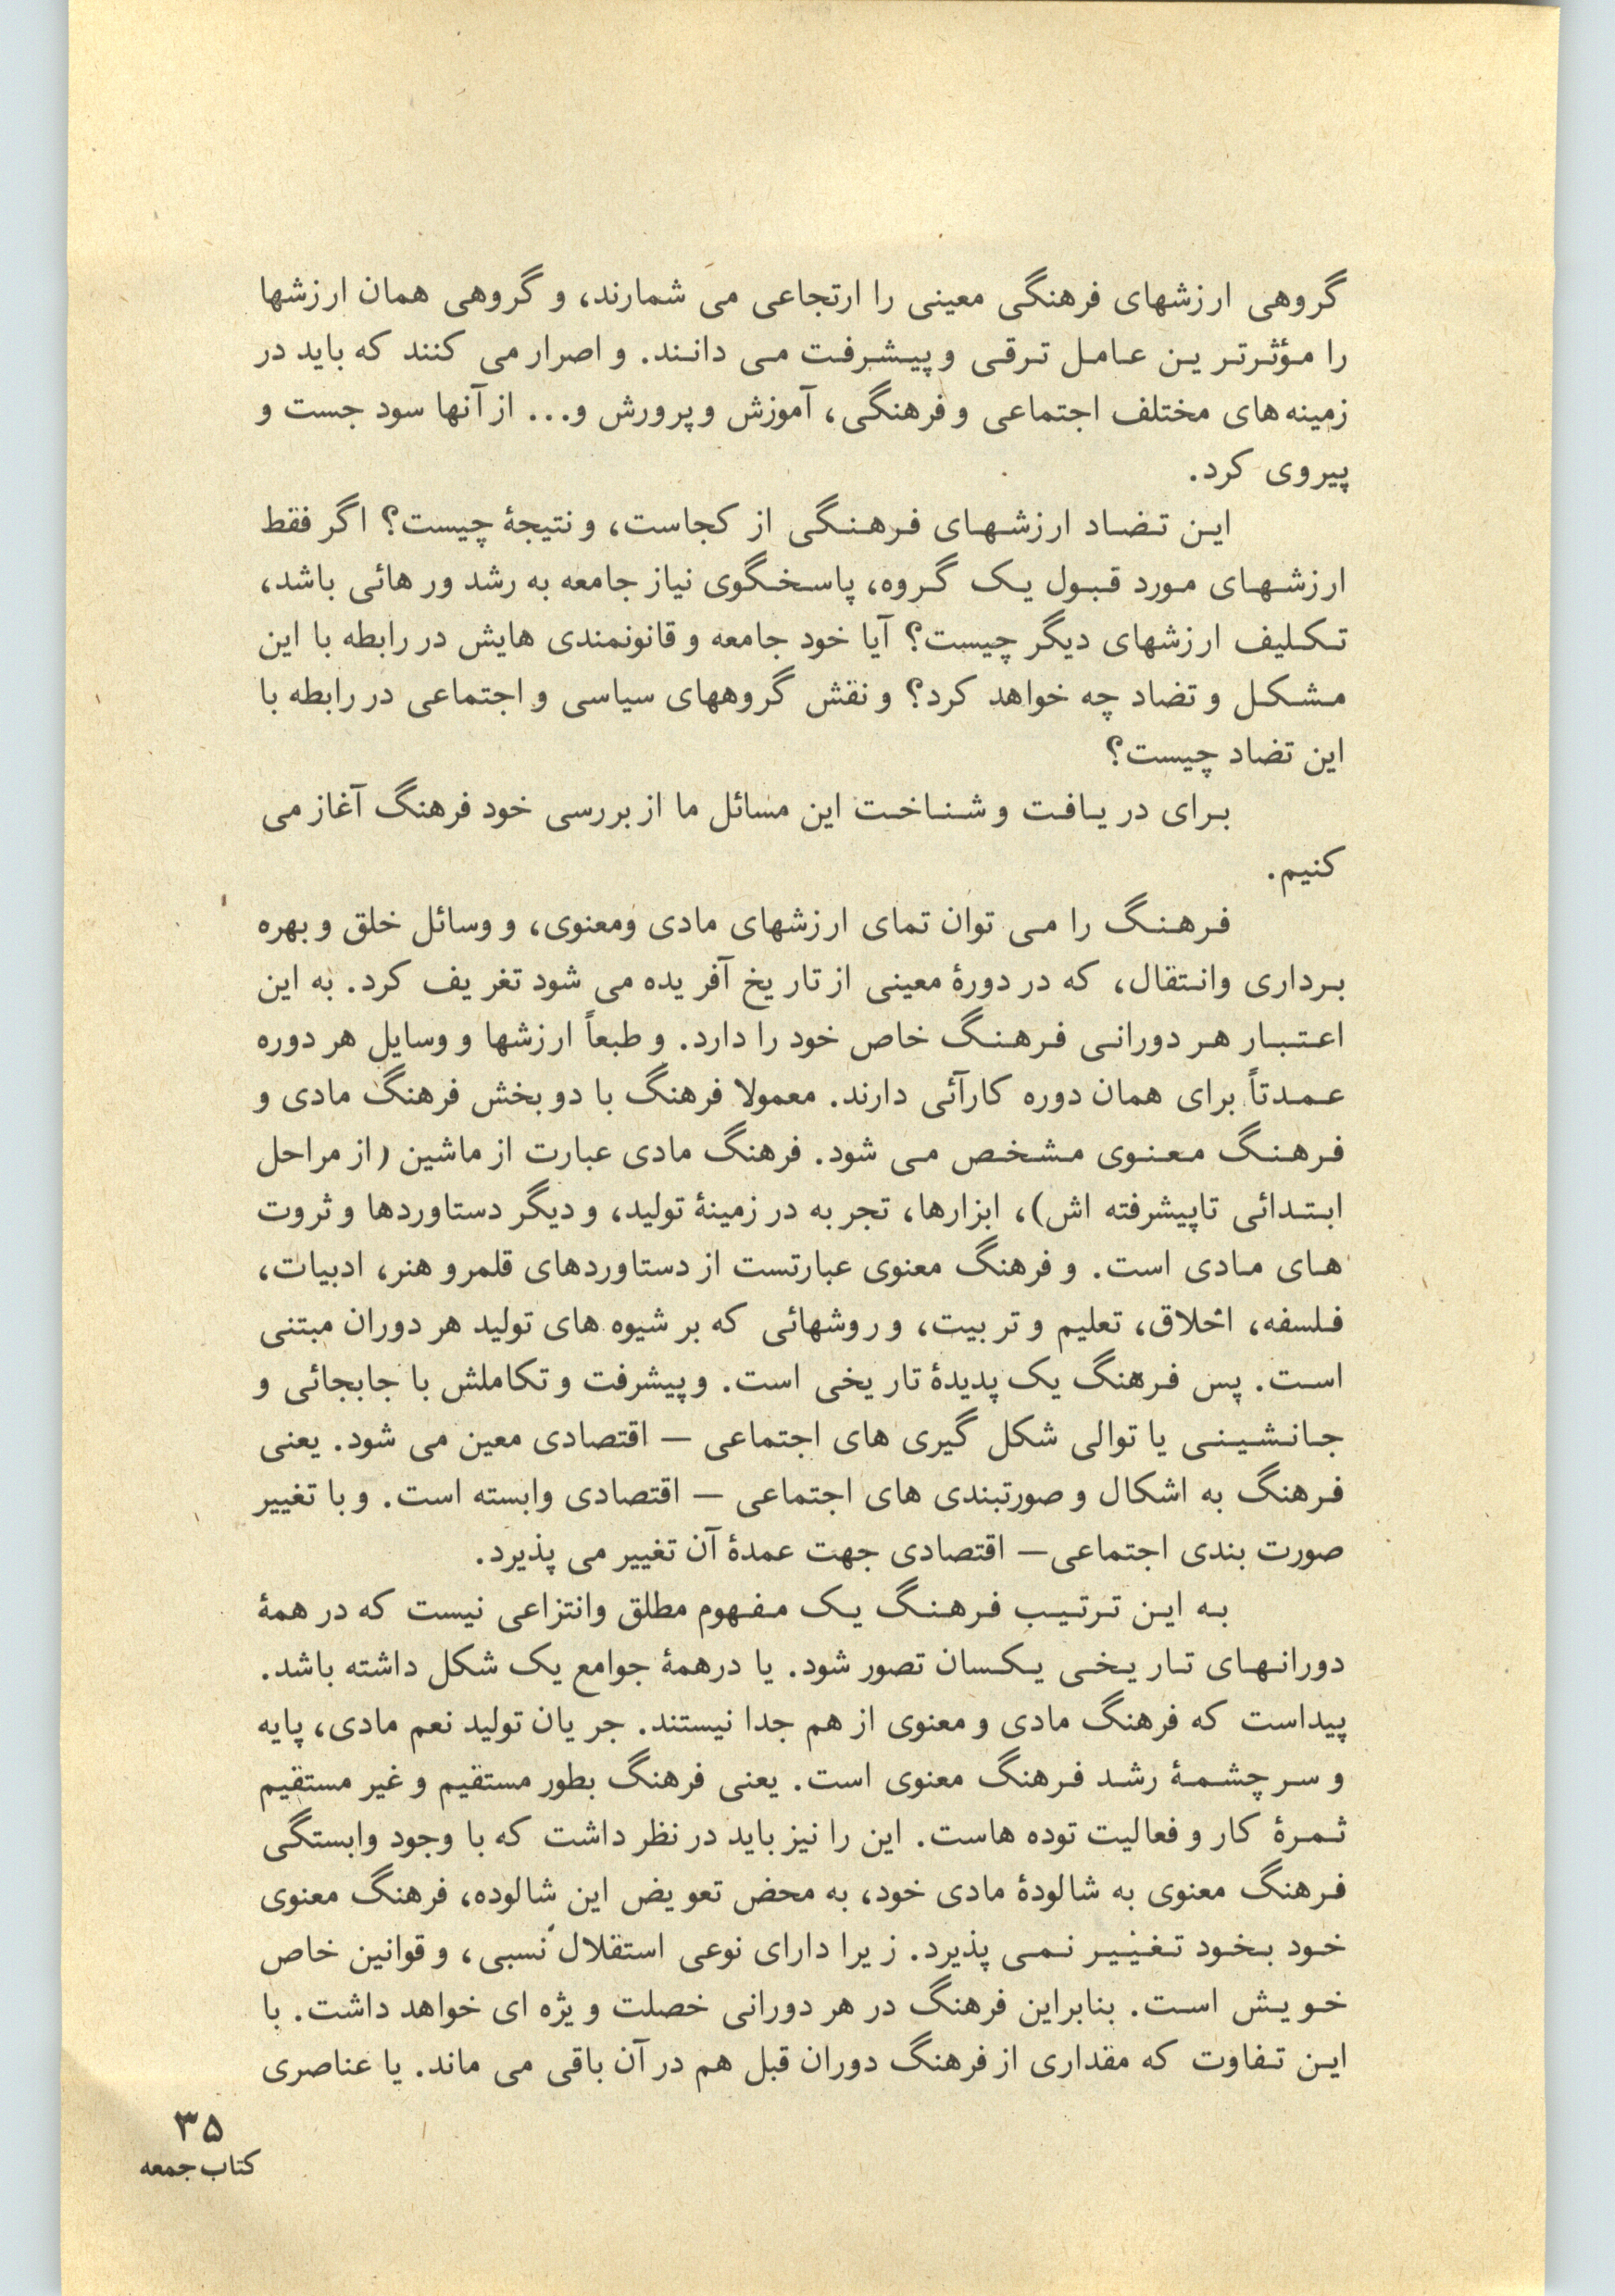 گروهی ارزشهای فرهنگی معینی را ارتجاعی می شمارند، و گروهی همان ارزشها
را مؤثرترین عامل ترقی و پیشرفت می دانند. و اصرار می کنند که باید در
زمینه های مختلف اجتماعی و فرهنگی، آموزش و پرورش و... از آنها سود جست و
پیروی کرد.
این تضاد ارزشهای فرهنگی از کجاست، و نتیجهٔ چیست؟ اگر فقط
ارزشهای مورد قبول یک گروه، پاسخگوی نیاز جامعه به رشد و رهائی باشد،
تکلیف ارزشهای دیگر چیست؟ آیا خود جامعه و قانونمندی هایش در رابطه با این
مشکل و تضاد چه خواهد کرد؟ و نقش گروههای سیاسی و اجتماعی در رابطه با
این تضاد چیست؟
برای دریافت و شناخت این مسائل ما از بررسی خود فرهنگ آغاز می
کنیم.
فرهنگ را می توان تمای ارزشهای مادی ومعنوی، و وسائل خلق و بهره
برداری وانتقال، که در دورهٔ معینی از تاریخ آفریده می شود تغریف کرد. به این
اعتبار هر دورانی فرهنگ خاص خود را دارد. و طبعاً ارزشها و وسایل هر دوره
عمدتاً برای همان دوره کارآئی دارند. معمولا فرهنگ با دو بخش فرهنگ مادی و
فرهنگ معنوی مشخص می شود. فرهنگ مادی عبارت از ماشین (از مراحل
ابتدائی تاپیشرفته اش)، ابزارها، تجربه در زمینهٔ تولید، و دیگر دستاوردها و ثروت
های مادی است. و فرهنگ معنوی عبارتست از دستاوردهای قلمرو هنر، ادبیات،
فلسفه، اخلاق، تعلیم و تربیت، و روشهائی که بر شیوه های تولید هر دوران مبتنی
است. پس فرهنگ یک پدیدهٔ تاریخی است. و پیشرفت و تکاملش با جابجائی و
جانشینی یا توالی شکل گیری های اجتماعی – اقتصادی معین می شود. یعنی
فرهنگ به اشکال و صورتبندی های اجتماعی – اقتصادی وابسته است. و با تغییر
صورت بندی اجتماعی– اقتصادی جهت عمدهٔ آن تغییر می پذیرد.
به این ترتیب فرهنگ یک مفهوم مطلق وانتزاعی نیست که در همهٔ
دورانهای تاریخی یکسان تصور شود. یا درهمهٔ جوامع یک شکل داشته باشد.
پیداست که فرهنگ مادی و معنوی از هم جدا نیستند. جریان تولید نعم مادی، پایه
و سرچشمهٔ رشد فرهنگ معنوی است. یعنی فرهنگ بطور مستقیم و غیر مستقیم
ثمرهٔ کار و فعالیت توده هاست. این را نیز باید در نظر داشت که با وجود وابستگی
فرهنگ معنوی به شالودهٔ مادی خود، به محض تعویض این شالوده، فرهنگ معنوی
خود بخود تغییر نمی پذیرد. زیرا دارای نوعی استقلال نسبی، و قوانین خاص
خویش است. بنابراین فرهنگ در هر دورانی خصلت ویژه ای خواهد داشت. با
این تفاوت که مقداری از فرهنگ دوران قبل هم در آن باقی می ماند. یا عناصری
۳۵
کتاب جمعه